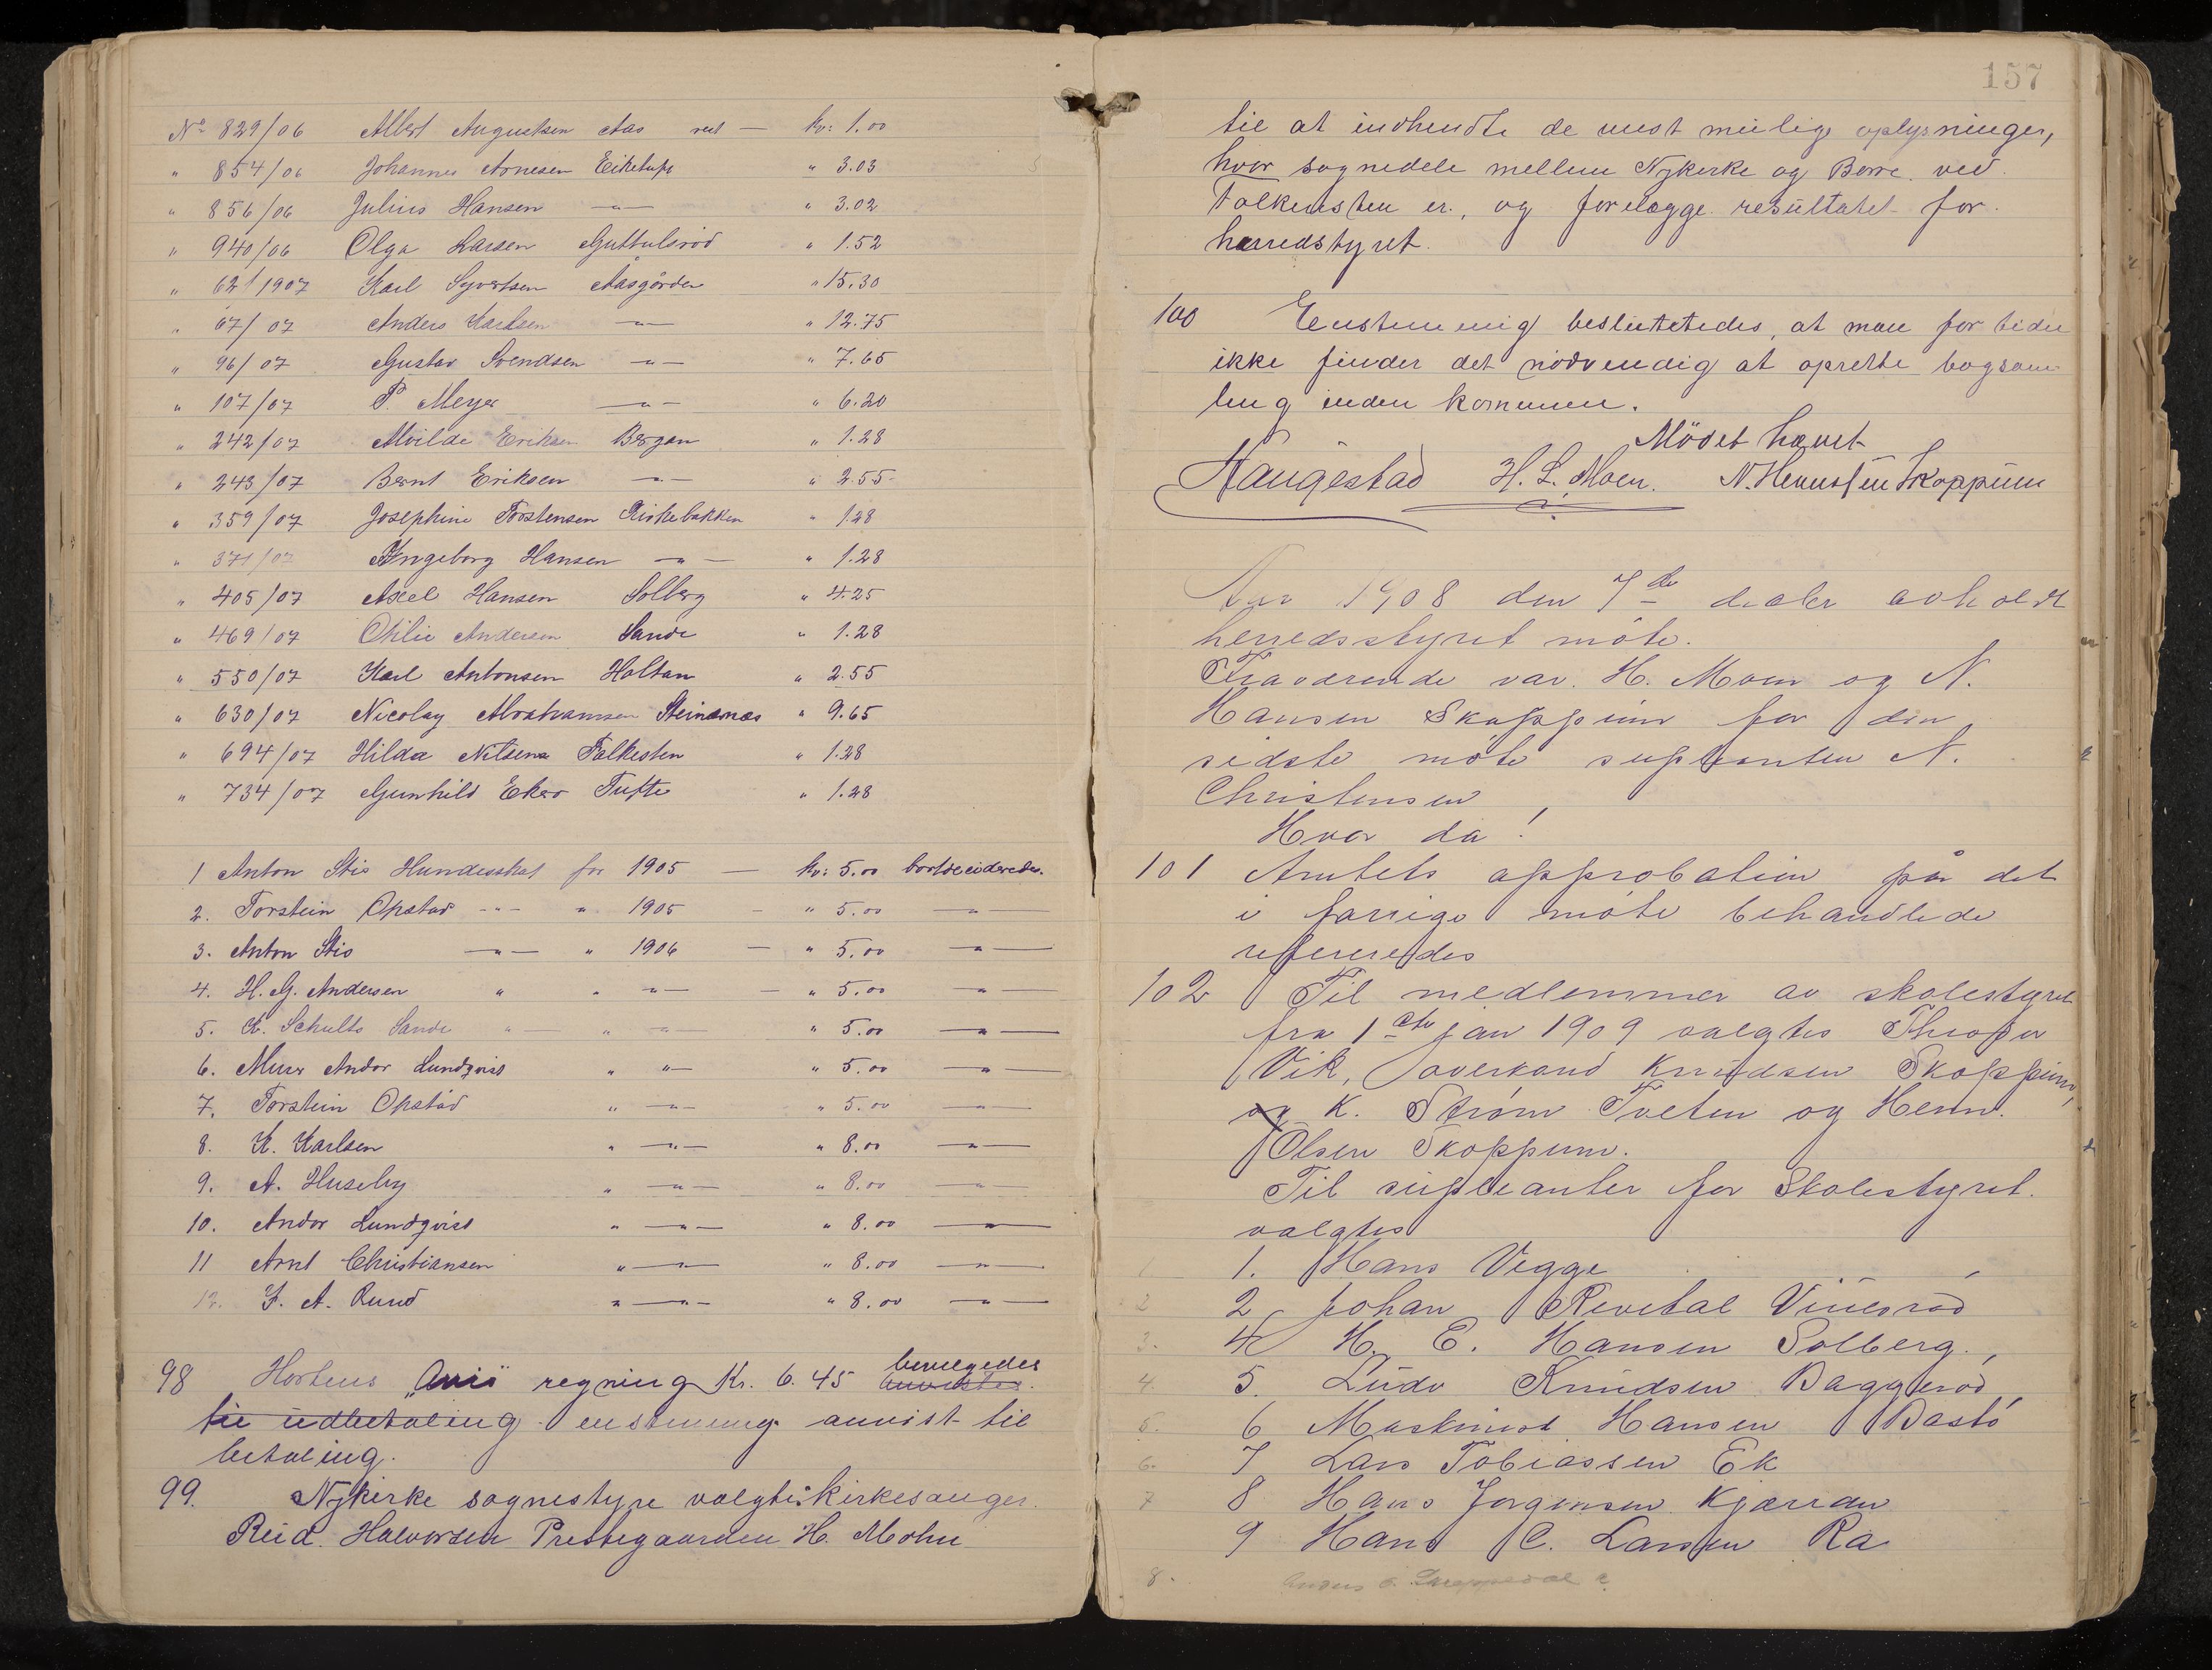 No 829/06 Albert Augustsen Aas rest — kr: 1.00
" 854/06 Johannes Arnesen Eiketuft " 3.03
" 856/06 Julius Hansen —"— " 3.02
" 940/06 Olga Larsen Guttulsröd " 1.52
" 62/1907 Karl Syvertsen Aasgården " 15.30
" 67/07 Anders Karlsen —"— " 12.75
" 96/07 Gustav Svendsen —"— " 7.65
" 107/07 P. Meyer —"— " 6.20
" 242/07 Eriksen Bergan " 1.28
" 243/07 Bernt Eriksen —"— " 2.55
" 359/07 Josephine Torstensen Kirkebakken " 1.28
" 371/07 Ingeborg Hansen —"— " 1.28
" 405/07 Axel Hansen Solberg " 4.25
" 469/07 Otilie Andersen Sande " 1.28
" 550/07 Karl Antonsen Holtan " 2.55
" 630/07 Nicolay Abrahamsen Steinsnes " 9.65
" 694/07 Hilda Nilsena Falkesten " 1.28
" 734/07 Gunhild Ekero Tufte " 1.28
1 Anton Stis Hundesskat for 1905 — kr: 5.00
2. Torstein Opstad -"- " 1905 - " 5.00 —"—
3. Anton Stis —"— " 1906 — " 5.00 —"—
4. H. G. Andersen " " -"- — " 5.00 —"—
5. K. Schults Sande "— " —"— " 5.00 —"—
6. Murer Andor Lundqvist " "— " 5.00 —"—
7. Torstein Opstad " —"— " 5.00 —"—
8. K. Karlsen " —"— " 8.00 —"—
9. A. Huseby " —"— " 8.00 —"—
10. Andor Lundqvist " —"— " 8.00 —"—
11 Arnt Christiansen " —"— " 8.00 —"—
12. F. A. Rund " —"— " 8.00 —"—
98 Hortens "Avis" regning Kr. 6.45 bevilgedes anvistes.
til udbetaling enstemmig anvist til
betaling.
99. Nykirke sognestyre valgtes kirkesanger
Reid. Halvorsen Prestegaarden H. Mohn
157
til at indhendte de mest mulige oplysninger,
hvor sognedele mellem Nykirke og Borre ved
Falkensten er, og forelægge resultatet for
herredstyret.
100 Enstemmig besluttedes, at man for tiden
ikke finder det nödvendig at oprette bogsam
ling inden kommunen.
Mödet hævet
Haugestad H. L. Moen. N. Hansen Skoppum
Aar 1908 den 7de decbr avholdt
herredsstyret möte.
Fraværende var H. Moen og N.
Hansen Skoppum for den
sidste møte suppleanten N.
Christensen
Hvor da!
101 Amtets approbation på det
i forrige möte behandlede
refereredes
102 Til medlemmer av skolestyret
fra 1ste jan 1909 valgtes Theodor
Vik, Overkand Knudsen Skoppum,
og K. Strøm Tveten og Henr.
Olsen Skoppum.
Til supleanter for Skolestyret
valgtes
1. Hans Vegge
2 2 Johan Revetal Viulsröd
3. 4 H. E. Hansen Solberg.
4. 5. Ludv Knudsen Baggeröd
5. 6 Maskinist Hansen Bastö
6. 7 Lars Tobiassen Ek
7 8 Hans Jørgensen Kjærran
9 Hans C. Larsen Ra
8. Anders